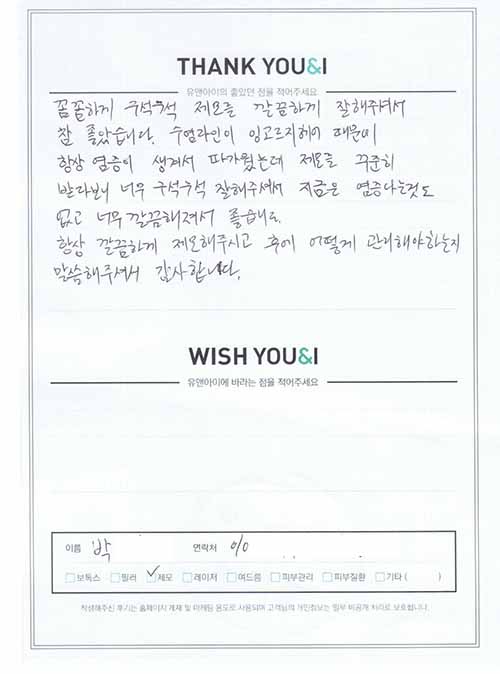 THANK YOU&I
유앤아이의 좋았던 점을 적어주세요
꼼꼼하게 구석구석 제모를 깔끔하게 잘해주셔서
참 좋았습니다. 수염라인이 잉고르지헤어 때문에
항상 염증이 생겨서 따가웠는데 제모를 꾸준히
받다보니 너무 구석구석 잘해주셔서 지금은 염증나는것도
없고 너무 깔끔해져서 좋습니다.
항상 깔끔하게 제모해주시고 후에 어떻게 관리해야하는지
말씀해주셔서 감사합니다.
WISH YOU&I
유앤아이에 바라는 점을 적어주세요
이름 박 연락처 010
보톡스 필러 제모 레이저 여드름 피부관리 피부질환 기타 ( )
작성해주신 후기는 홈페이지 게재 및 마케팅 용도로 사용되며 고객님의 개인정보는 일부 비공개 처리로 보호됩니다.